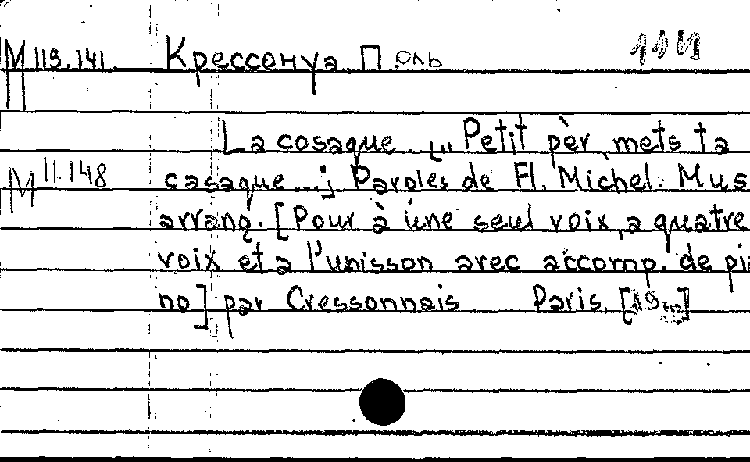 М 119.141. Крессонуа П.
La cosaque. [„ Petit pèr, mets ta
М 11.148 casaque...] Paroles de Fl. Michel. Mus
arrang. [Pour à une seul voix, a quatre
voix et a l'unisson avec accomp. de pi
no] par Cressonnais Paris,